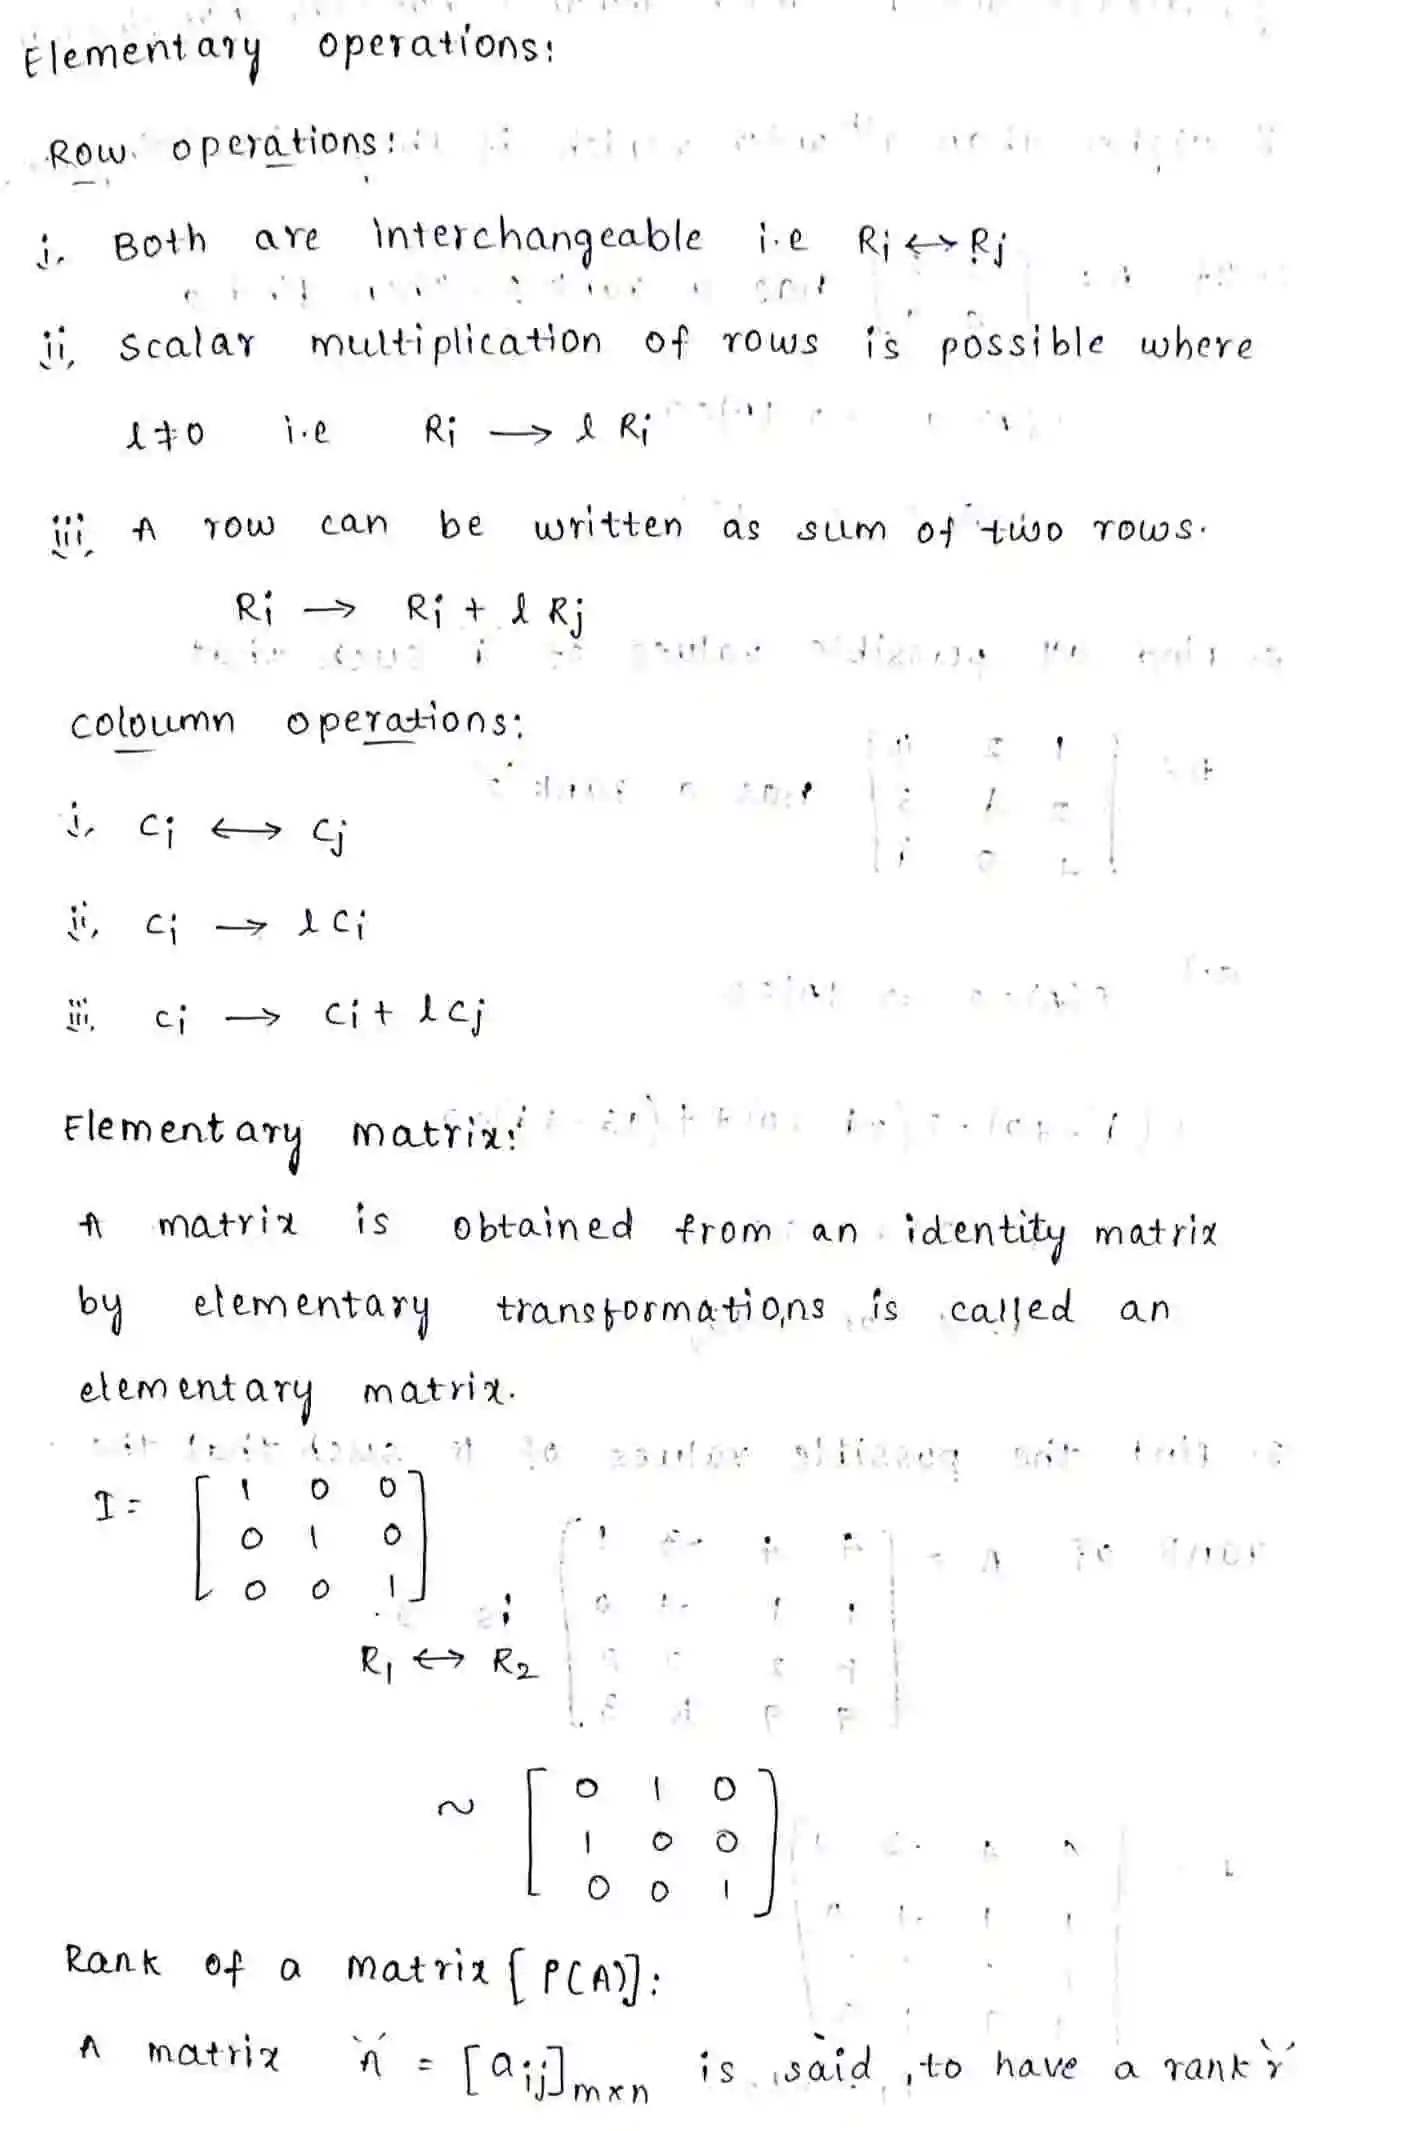 Elementary operations:
Row operations:
i. Both are interchangeable i.e Ri ↔ Rj
ii. Scalar multiplication of rows is possible where
l ≠ 0 i.e Ri → l Ri
iii. A row can be written as sum of two rows.
Ri → Ri + l Rj
coloumn operations:
i. Ci ↔ Cj
ii. Ci → l Ci
iii. Ci → Ci + l Cj
Elementary matrix:
A matrix is obtained from an identity matrix
by elementary transformations is called an
elementary matrix.
I = [ 1 0 0
0 1 0
0 0 1 ]
R1 ↔ R2
~ [ 0 1 0
1 0 0
0 0 1 ]
Rank of a matrix [P(A)]:
A matrix 'A' = [aij]m×n is said to have a rank 'r'